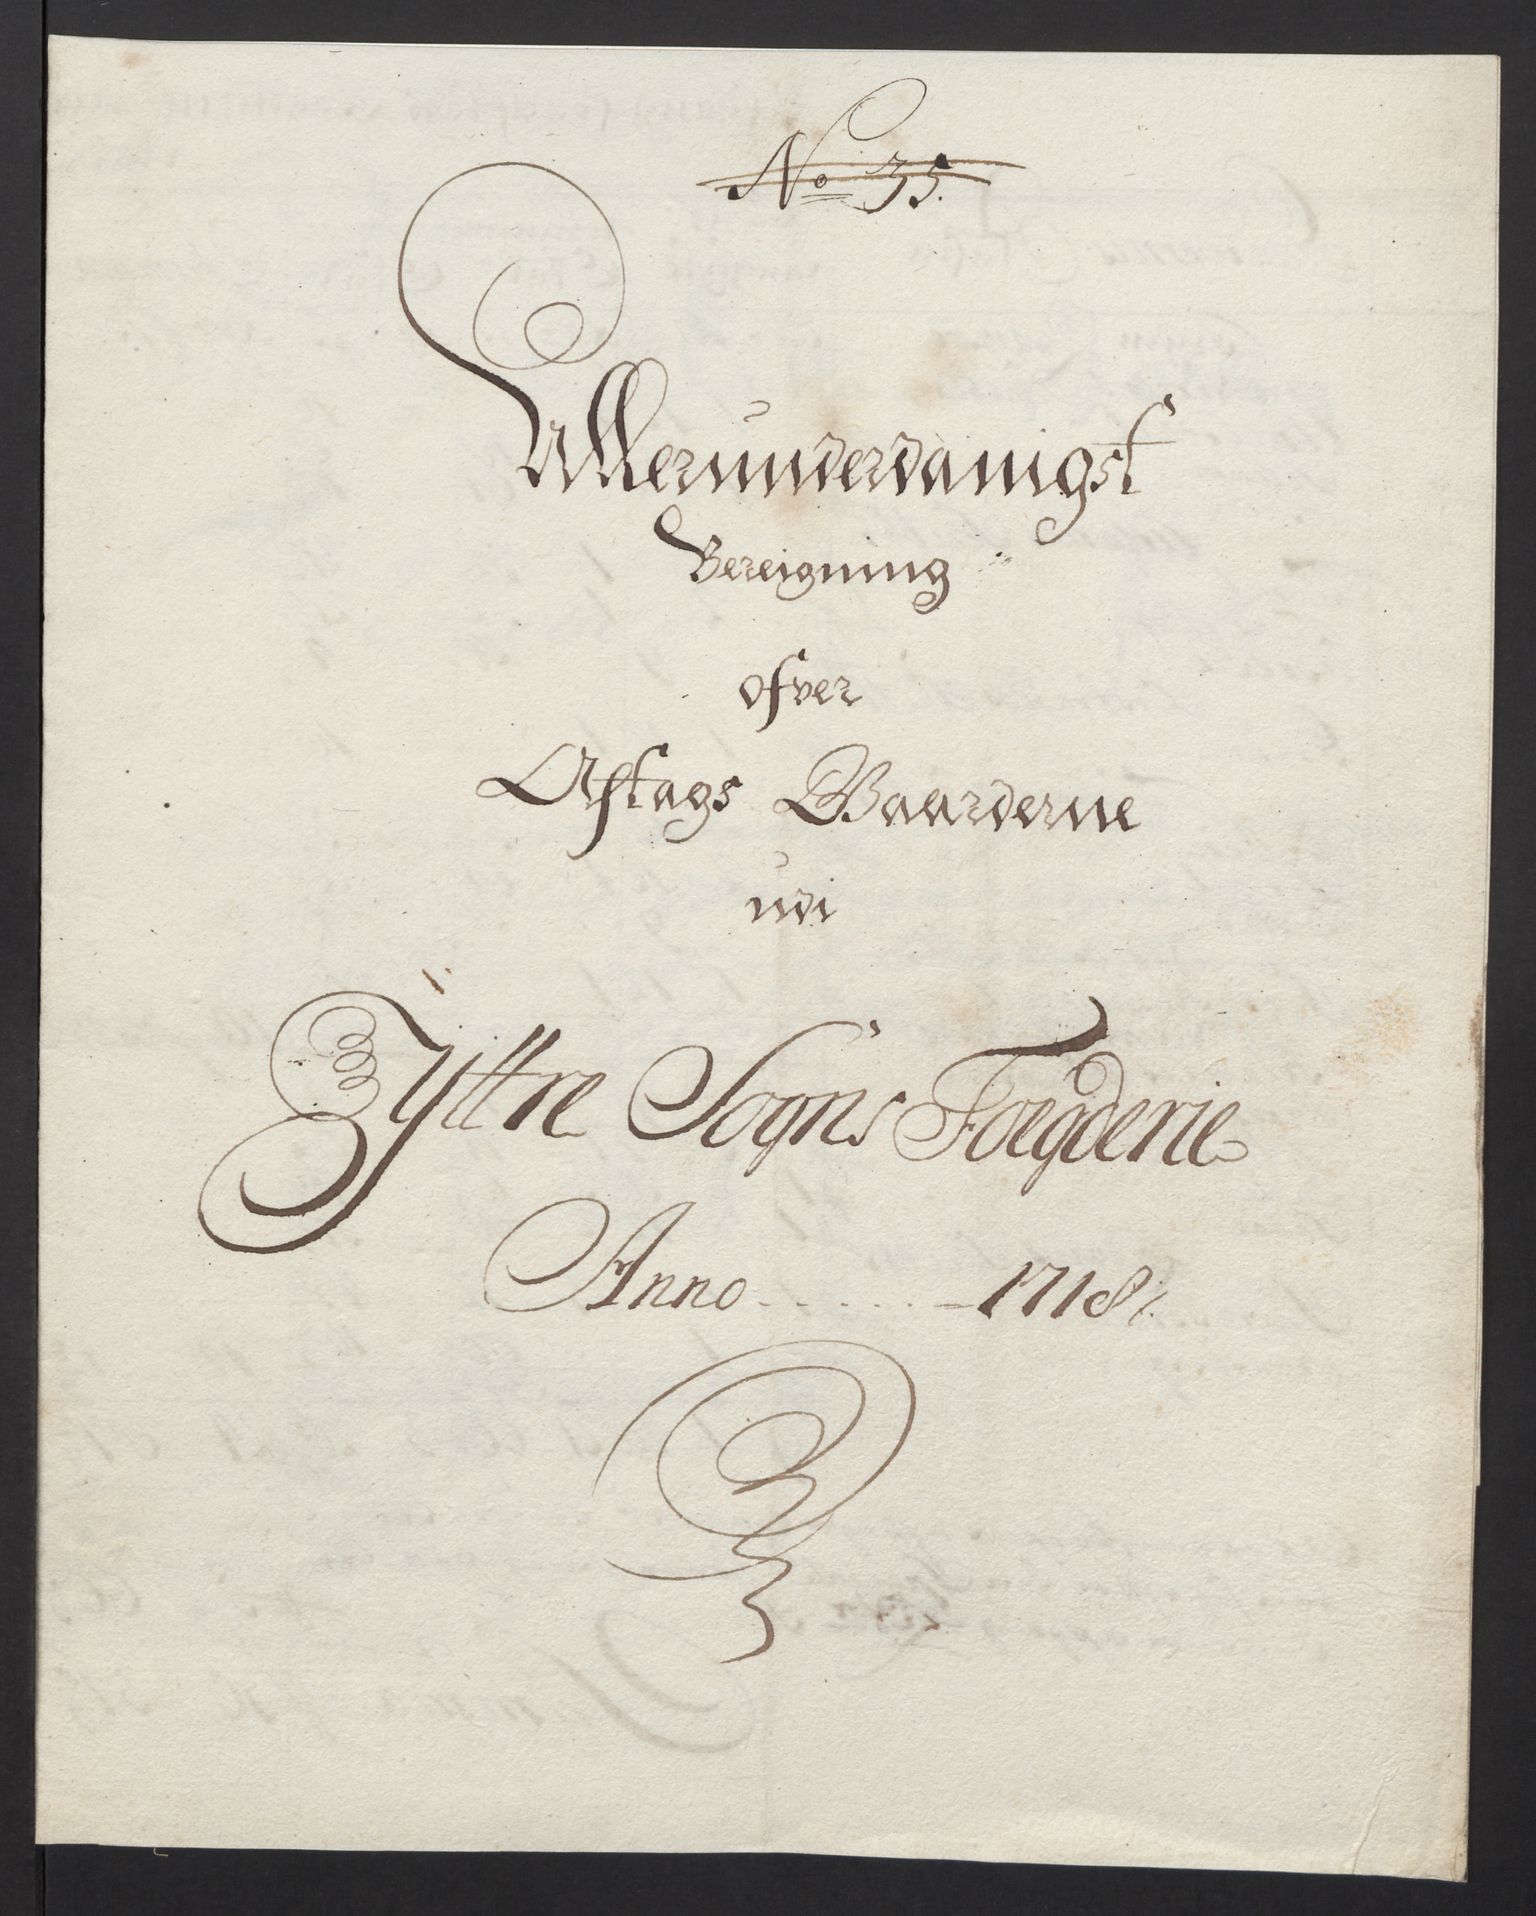 No 35.
Allerunderdanigst
Bereigning
ofver
Aftags Waarderne
udi
Yttre Sogns Foegderie
Anno . . . . . . 1718.